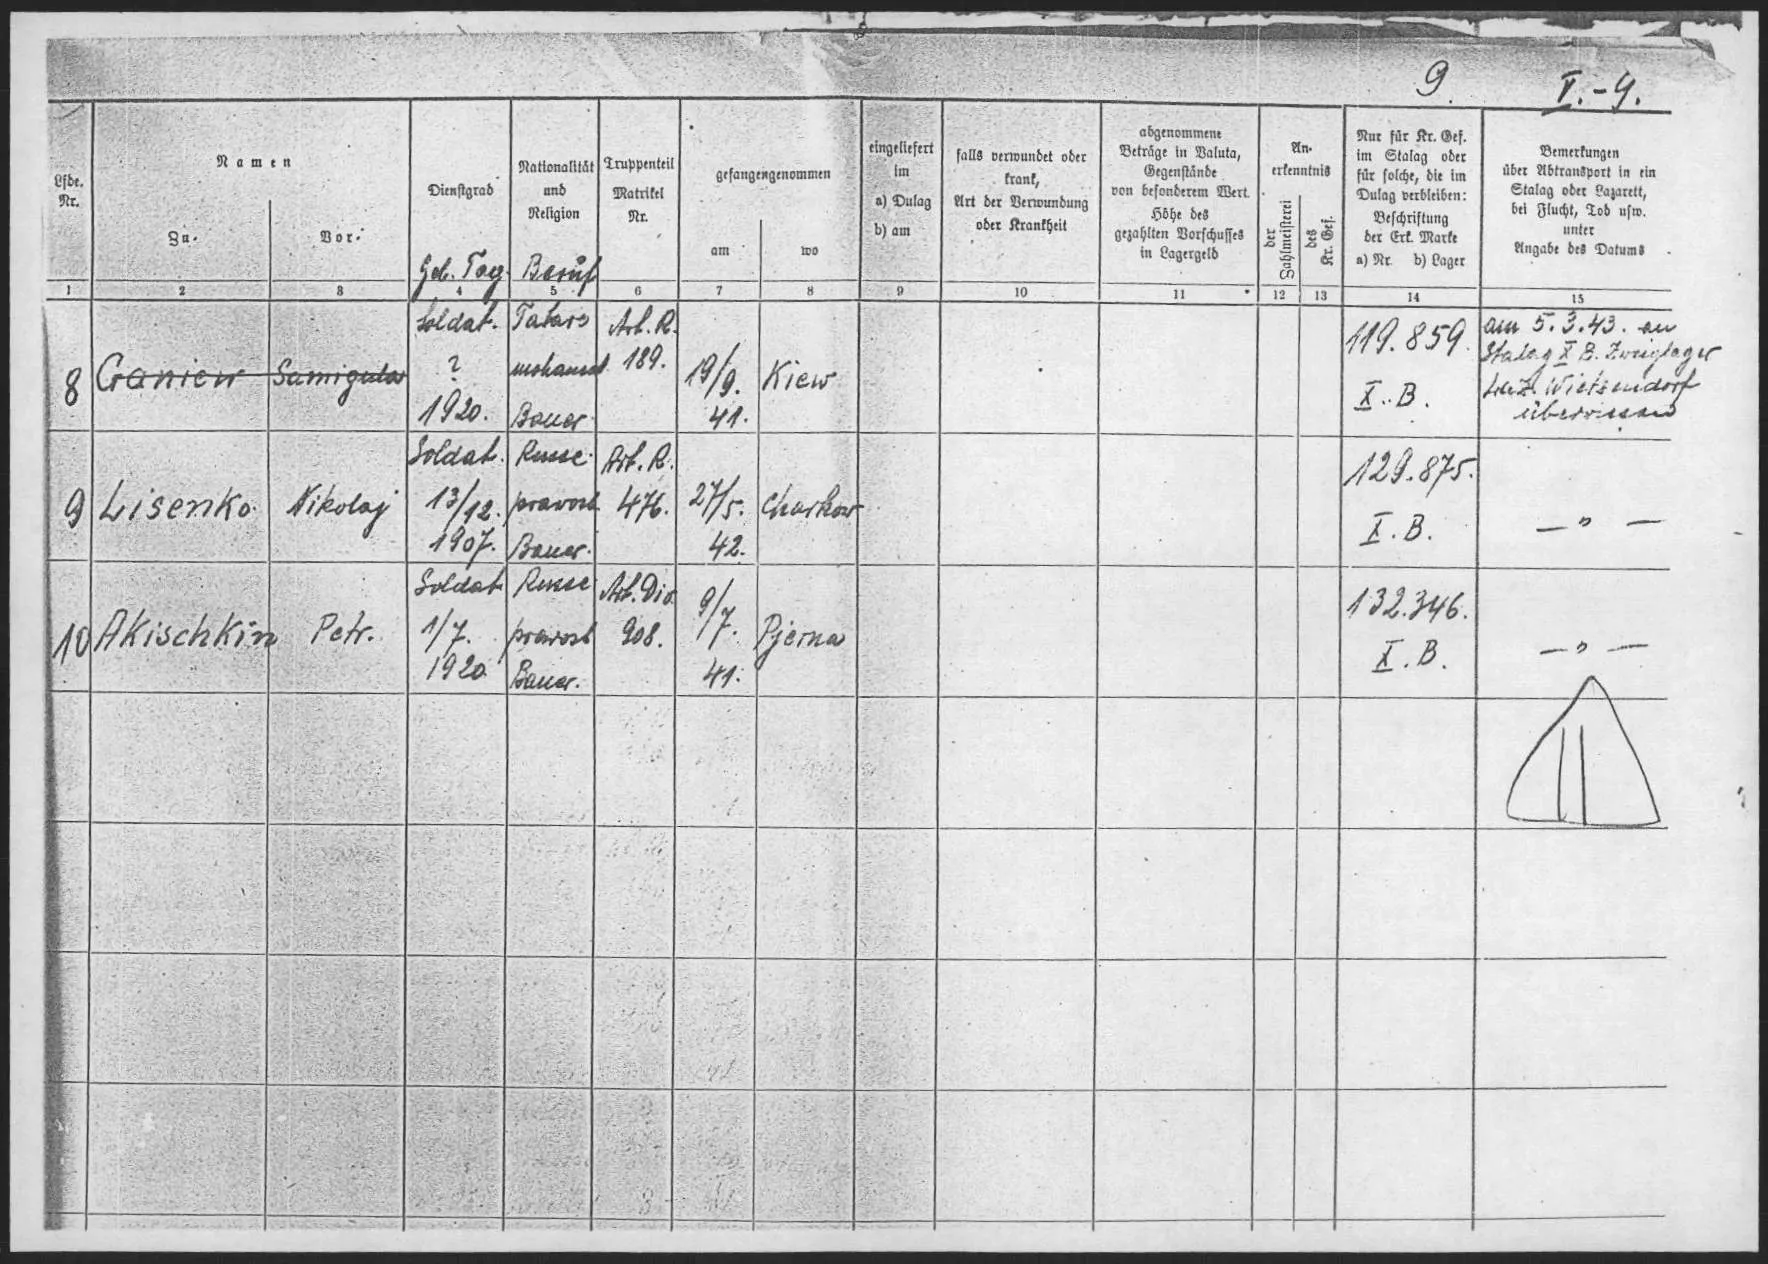 9. V.-9.
Lfde. Nr.
Namen
Zu-
Vor-
Dienstgrad
Geb. Tag.
Nationalität und Religion
Beruf
Truppenteil Matrikel Nr.
gefangengenommen
am
wo
eingeliefert im a) Dulag b) am
falls verwundet oder krank, Art der Verwundung oder Krankheit
abgenommene Beträge in Valuta, Gegenstände von besonderem Wert. Höhe des gezahlten Vorschusses in Lagergeld
An-erkenntnis
der Zahlmeisterei
des Kr. Gef.
Nur für Kr. Gef. im Stalag oder für solche, die im Dulag verbleiben: Beschriftung der Erk. Marke a) Nr. b) Lager
Bemerkungen über Abtransport in ein Stalag oder Lazarett, bei Flucht, Tod usw. unter Angabe des Datums
1 2 3 4 5 6 7 8 9 10 11 12 13 14 15
8 Ganiew Samigula
Soldat.
?
1920.
Tatare
mohamed
Bauer.
Art. R.
189.
19/9.
41.
Kiew
119.859.
X.B.
am 5.3.43. an
Stalag X B. Zweiglager
Wietzendorf
überwiesen
9 Lisenko Nikolaj
Soldat.
13/12.
1907.
Russe.
prawosl.
Bauer.
Art. R.
476.
27/5.
42.
Charkow
129.875.
X.B.
— " —
10 Akischkin Petr.
Soldat
1/7.
1920.
Russe
prawosl
Bauer.
Art. Div.
908.
9/7.
41.
Pjerna
132.346.
X.B.
— " —